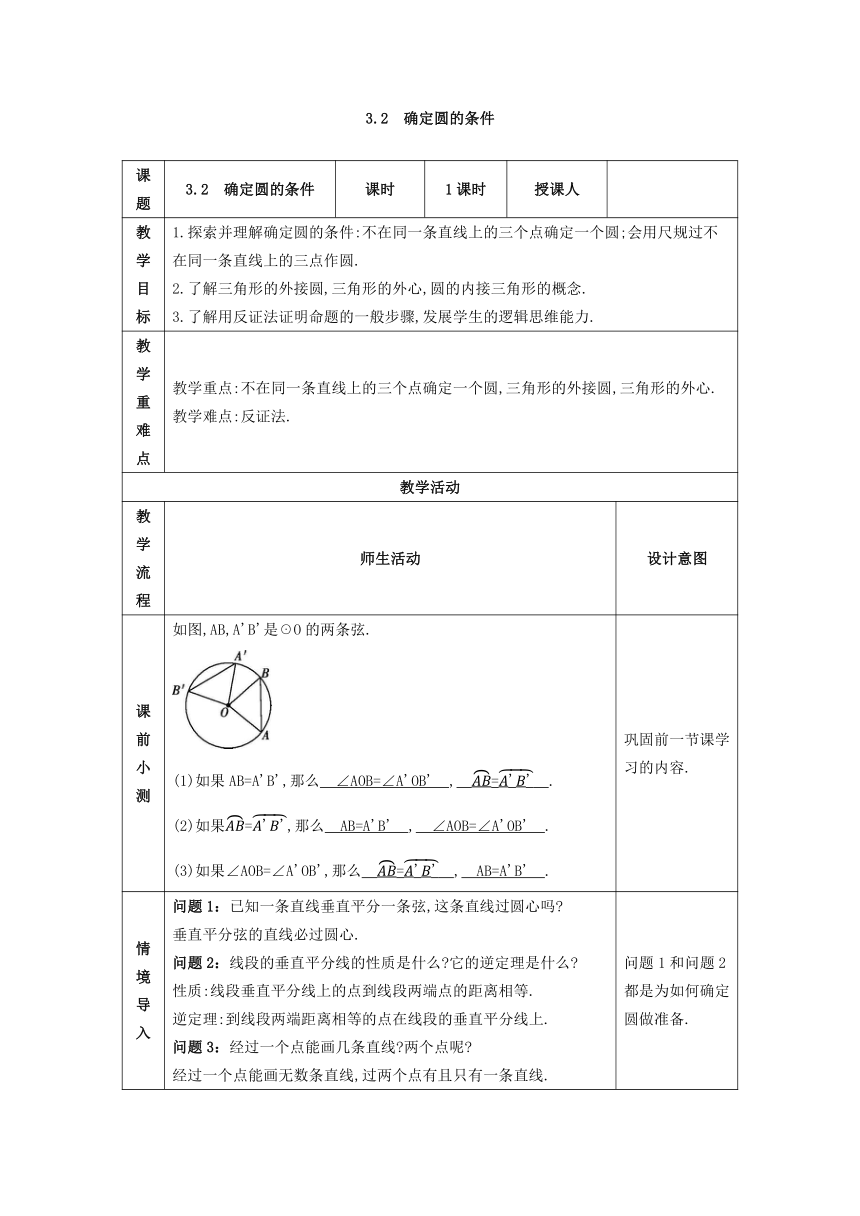 3.2 确定圆的条件
课题 3.2 确定圆的条件 课时 1课时 授课人
教学目标
1.探索并理解确定圆的条件:不在同一条直线上的三个点确定一个圆;会用尺规过不
在同一条直线上的三点作圆.
2.了解三角形的外接圆,三角形的外心,圆的内接三角形的概念.
3.了解用反证法证明命题的一般步骤,发展学生的逻辑思维能力.
教学重难点
教学重点:不在同一条直线上的三个点确定一个圆,三角形的外接圆,三角形的外心.
教学难点:反证法.
教学活动
教学流程 师生活动 设计意图
课前小测
如图,AB,A'B'是⊙O的两条弦.
A'
B
B'
O
A
(1)如果AB=A'B',那么 ∠AOB=∠A'OB' , A͡B=A͡'B' .
(2)如果A͡B=A͡'B',那么 AB=A'B' , ∠AOB=∠A'OB' .
(3)如果∠AOB=∠A'OB',那么 A͡B=A͡'B' , AB=A'B' .
巩固前一节课学
习的内容.
情境导入
问题1:已知一条直线垂直平分一条弦,这条直线过圆心吗?
垂直平分弦的直线必过圆心.
问题2:线段的垂直平分线的性质是什么?它的逆定理是什么?
性质:线段垂直平分线上的点到线段两端点的距离相等.
逆定理:到线段两端距离相等的点在线段的垂直平分线上.
问题3:经过一个点能画几条直线?两个点呢?
经过一个点能画无数条直线,过两个点有且只有一条直线.
问题1和问题2
都是为如何确定
圆做准备.